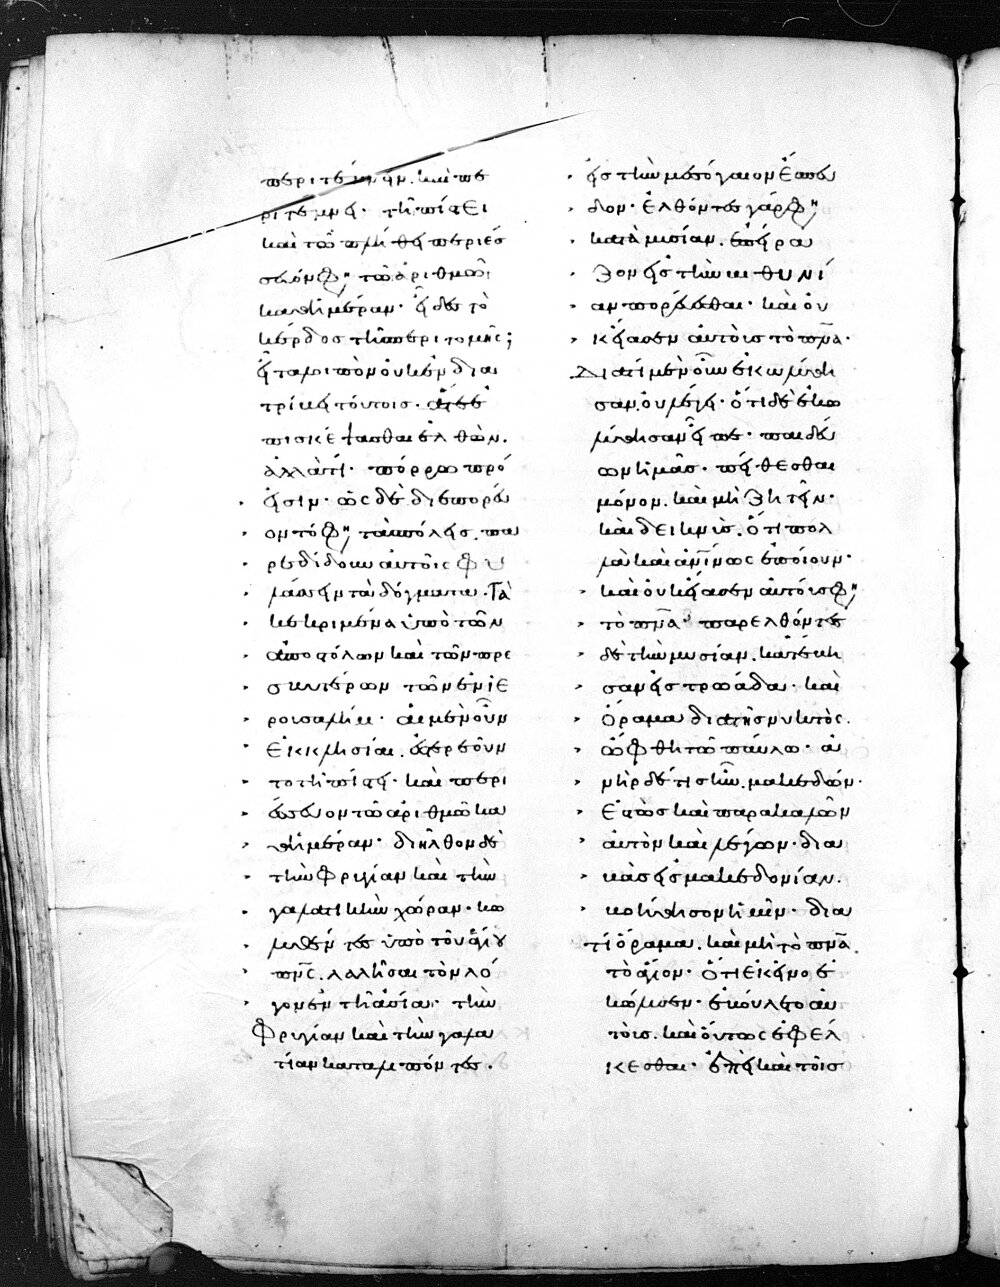 περιτέμνειν. καὶ πε
ριτεμνει· τῆ πίστει
καὶ τῶ πλήθει περιέσ
σευον· τῶ ἀριθμῶ
καθημέραν· εἶδες τὸ
κέρδος τῆς περιτομῆς;
εἶτα λοιπὸν οὐκ ἐν δια
τρίβει τούτοις·
πισκέψασθαι ἐλθὼν.
ἀλλὰ τί· πόρρω πρό
εισιν· ὡς δὲ διεπορεύ
οντο, τὰς πόλεις. πα
ρεδίδουν αὐτοῖς φυ
λάσσειν τὰ δόγματα. τὰ
κεκριμένα ὑπὸ τῶν
ἀποστόλων καὶ τῶν πρε
σβυτέρων τῶν ἐν ἱε
ρουσαλήμ. αἱ μὲν οὖν
ἐκκλησίαι. ἐστερεοῦν
το τῆ πίστει· καὶ περι
έσσευον τῶ ἀριθμῶ κα
θημέραν· διῆλθον δὲ
τὴν Φρυγίαν καὶ τὴν
γαλατικὴν χώραν· κω
λυθέντες ὑπὸ τοῦ ἁγίου
πνς. λαλῆσαι τὸν λό
γον ἐν τῆ ἀσία· τὴν
Φρυγίαν καὶ τὴν γαλα
τίαν καταλιπόντες.
εἰς τὴν μεσόγαιον ἔσπευ
δον· ἐλθόντες γάρ φησι,
κατὰ μυσίαν. ἐπείρα
ζον εἰς τὴν βιθυνί
αν πορεύεσθαι· καὶ οὐ
κ εἴασεν αὐτοὺς τὸ πνα·
Διατί μὲν οὖν ἐκωλύθη
σαν. οὐ λέγει· ὅτι δὲ ἐκω
λύθησαν εἶπε· παιδεύ
ων ἡμᾶς· πείθεσθαι
μόνον. καὶ μὴ ζητεῖν·
καὶ δεικνὺς. ὅτι πολ
λὰ καὶ ἀνίνως ἐποίουν·
καὶ οὐκ εἴασεν αὐτούς φησι,
τὸ πνα· παρελθόντες
δὲ τὴν μυσίαν. κατέβη
σαν εἰς τρωάδα· καὶ
ὅραμα διὰ τῆς νυκτὸς.
ὤφθη τῶ παύλω· ἀ
νήρ δέ τις ἦν. μακεδών·
ἑστὼς καὶ παρακαλῶν
αὐτὸν καὶ λέγων· δια
βὰς εἰς μακεδονίαν.
βοήθησον ἡμῖν· δια
τί ὅραμα. καὶ μὴ τὸ πνα.
τὸ ἅγιον· ὅτι ἐκεῖνο ἐ
κώλυσεν· ἐβούλετο αὐ
τοὺς. καὶ οὕτως ἐφέλ
κεσθαι· ἐπεὶ καὶ τοῖς